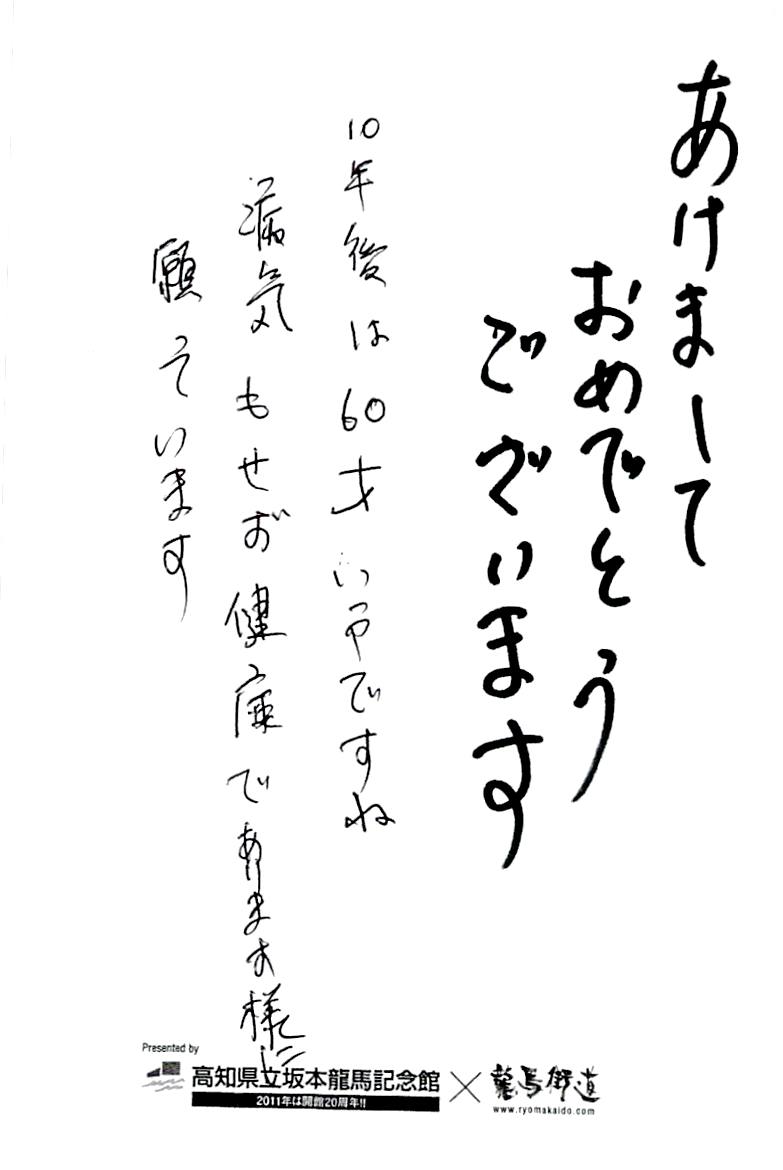 あけまして
おめでとう
ございます
10年後は60才いやですね
病気もせず健康であります様に
願っています
Presented by
高知県立坂本龍馬記念館 × 龍馬街道
2011年は開館20周年!!
www.ryomakaido.com